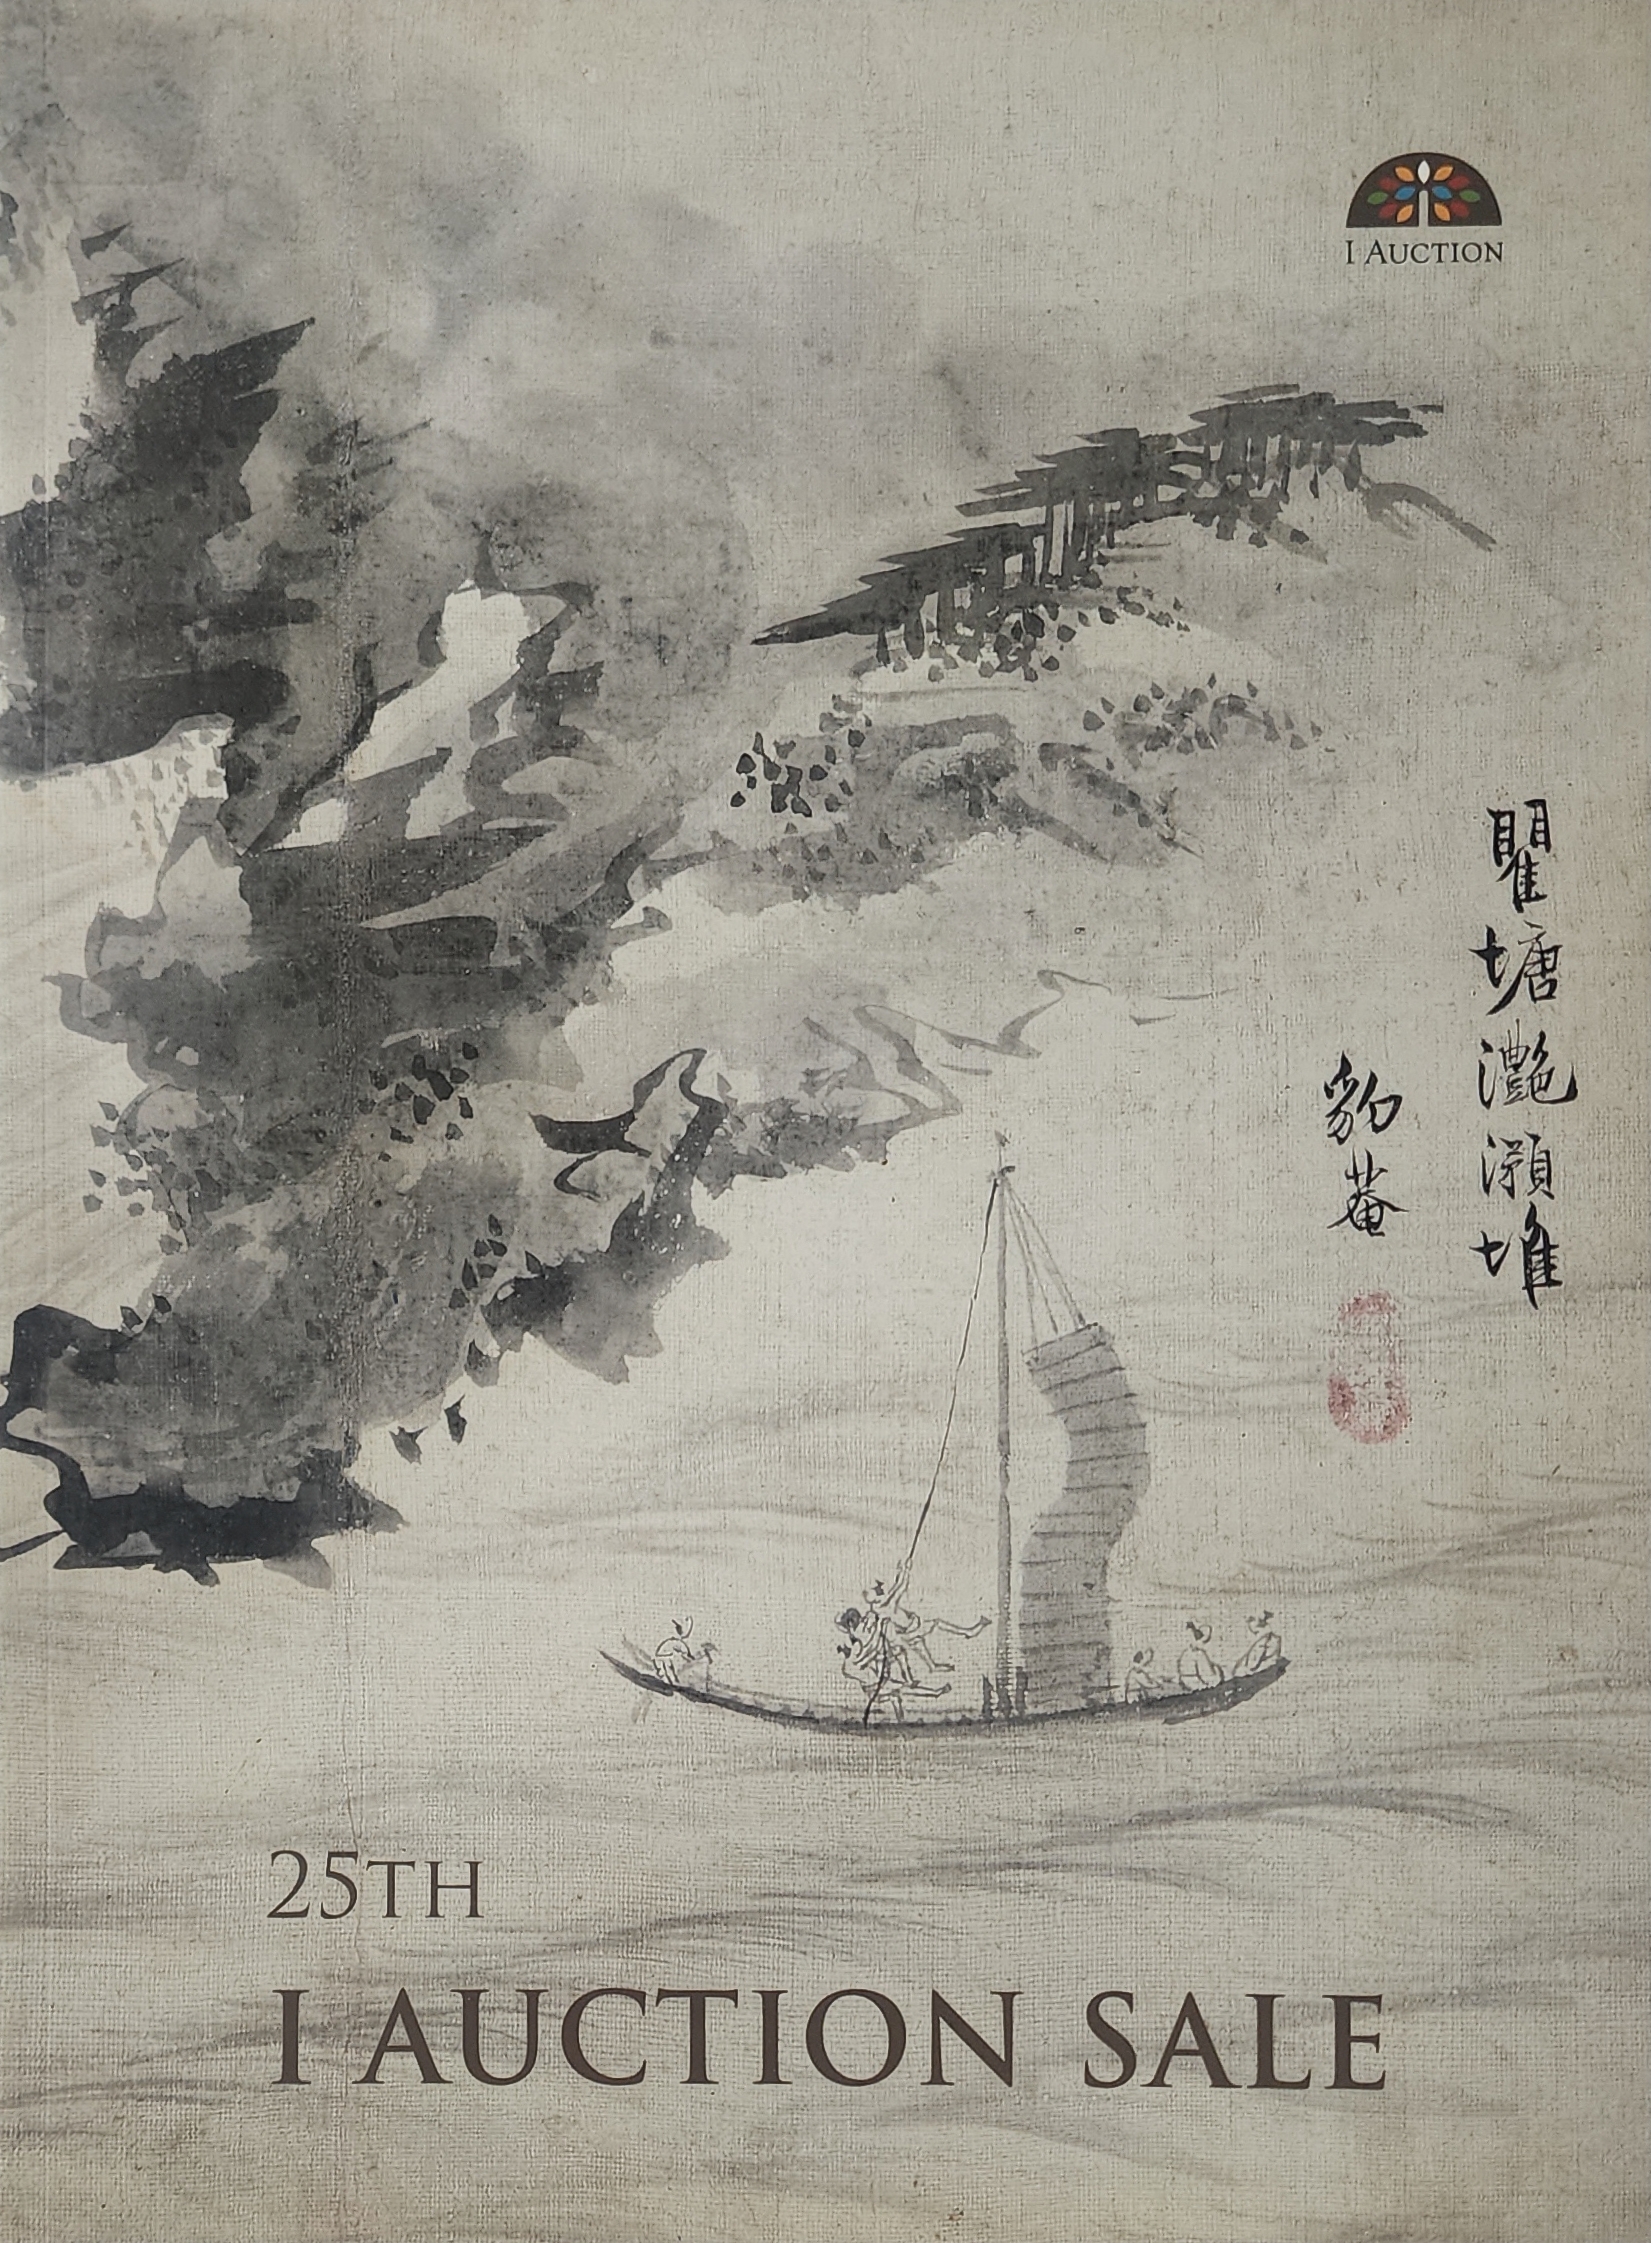 I AUCTION
瞿塘灩澦堆
豹菴
25TH
I AUCTION SALE